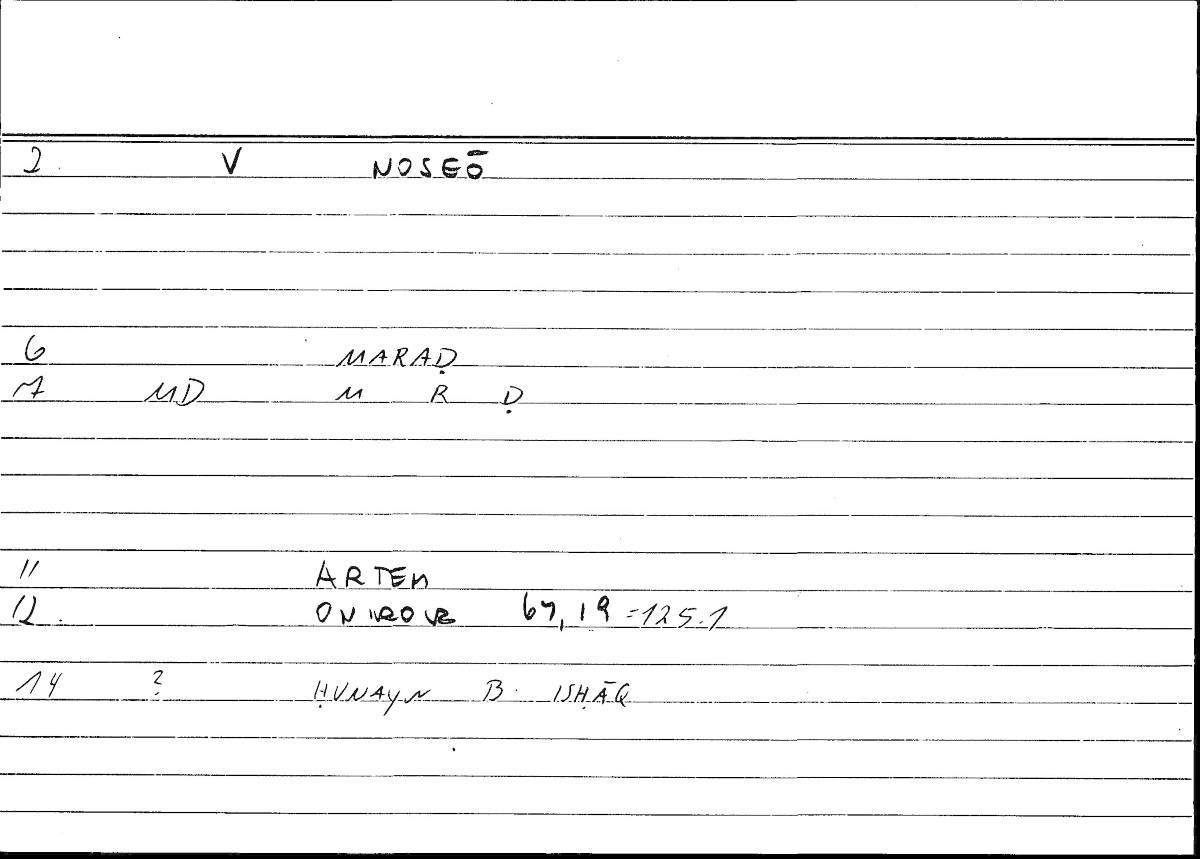 2. V NOSEŌ
6 MARAḌ
7 MD M R Ḍ
11 ARTEM
12. ONIROCR 67,19 =125.1
14 ? ḤUNAYN B. ISḤĀQ